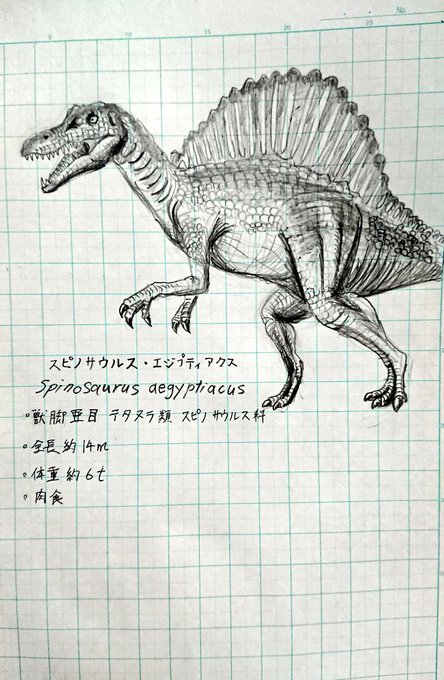 No.
5 10 15 20 25
スピノサウルス・エジプティアクス
Spinosaurus aegyptiacus
・獣脚亜目 テタヌラ類 スピノサウルス科
・全長約14m
・体重約6t
・肉食